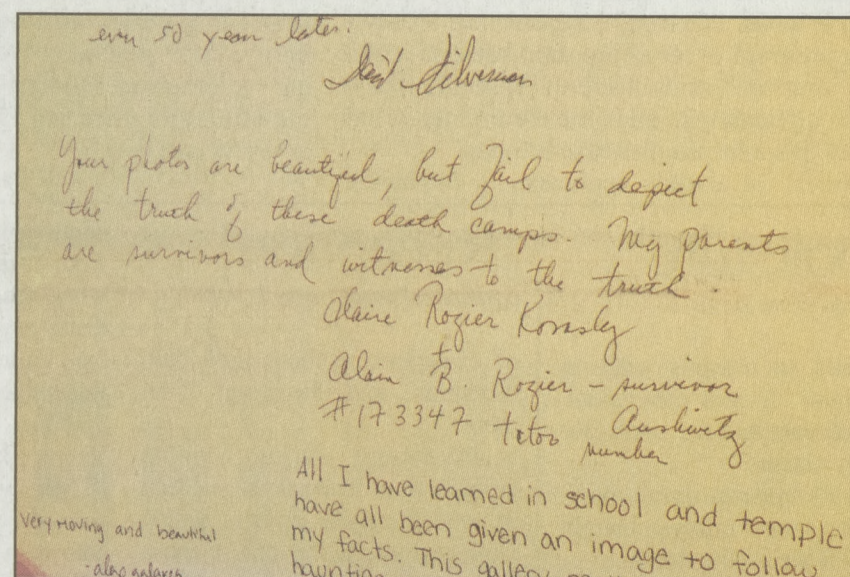 even 50 years later.
David Silverman
Your photos are beautiful, but fail to depict
the truth of these death camps. My parents
are survivors and witnesses to the truth.
Claire Rozier
Alain B. Rozier – survivor
#173347 Aushwitz
number
All I have learned in school and temple
have all been given an image to follow
my facts. This gallery
very moving and beautiful